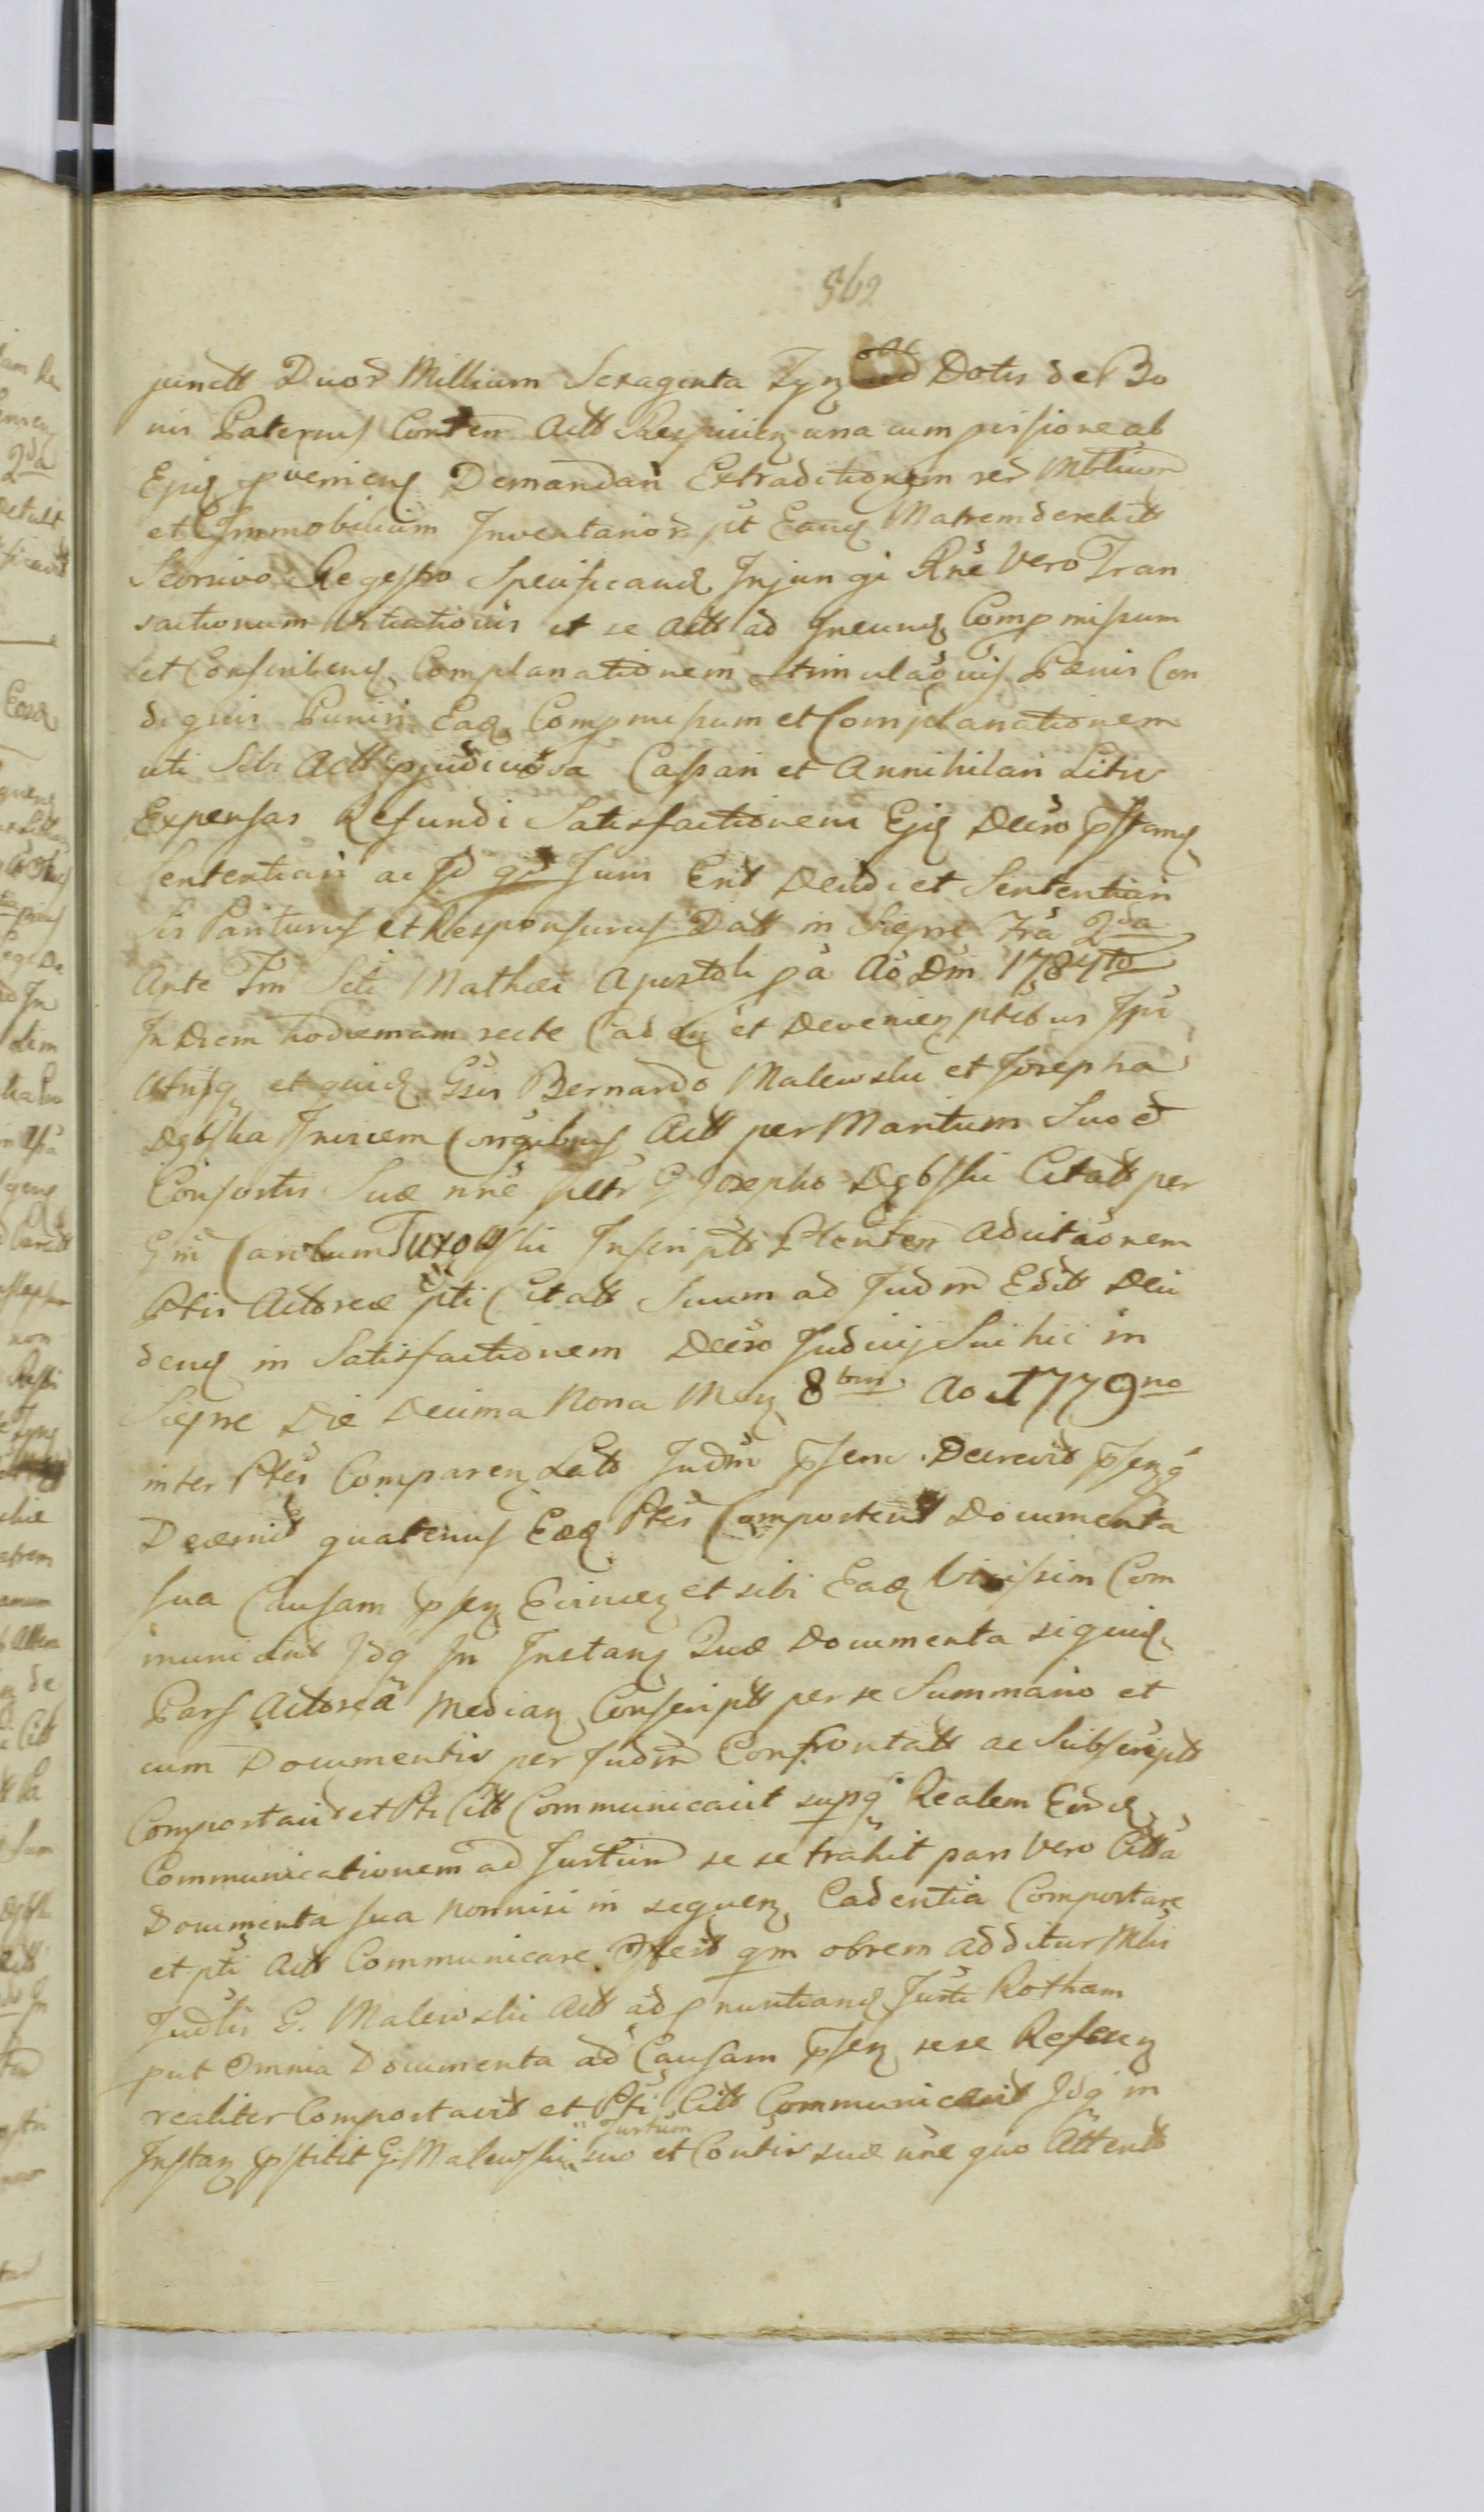 562
punctt Duor Millium Sexagenta Tyn Dotis de Bo
nis Paternis Conten Actt Respicien una cum provisione ab
Ejus pveniens Demandari Extraditionem rer Mbilium
et Immobilium Inventarior pt Eand Matrem derelictt
Seorsivo Regestro Specificand Injungi Rne Vero Tran
sactionum et se Actt ad Ineund Compmissum
et Conscribend Complanationem Stimulaonis Pænis Con
dignis Puniri Ead Compmissum et Complanationem
uti Sibi Actt pjudiciosa Cassari et Annihilari Litis
Expensas Refundi Satisfactionem Ejus Decro pstand
Sententiari ac Id qd Juris Erit Decidi et Sententiari
Sis Pariturus et Responsurus Datt in Sierpc Fria 2da
Ante Fm Scti Mathæi Apostoli pa Ao Dni 1784to
In Diem hodiernam recte Caden et Devenien ptibus Ipis
Utrisq et quid Gsis Bernardo Malewski et Josepha
Dębska Invicem Conjgibus Actt per Maritum Suo et
Consortis Suæ nne G Josepho Dębski Citatt per
Gm Carolum Inscriptt Plenten Adcitaonem
Ptis Actoreæ pti Citatt Suum ad Judm Editt Deci
dens in Satisfactionem Decro Judicij Sui hic in
Sierpc Die Decima Nona Mens 8bris Ao 1779no
inter Ptes Comparen Latt Judm psens Decrevit psenq
Decernit quatenus Eæd Ptes Comportent Documenta
sua Causam psen Evincen et sibi Ead Vicissim Com
municent Idq In Instan Quæ Documenta siquid
Pars Actorea Median Conscriptt per se Summario et
cum Documentis per Judm Confrontatt ac Subscriptt
Comportavit et Pti Citt Communicavit supq Realem Eord
Communicationem ad Justum se se trahit pars Vero Citta
Documenta sua nonnisi in sequen Cadentia Comportare
et pti Actt Communicare Offert qm obrem additur Mtis
Judlis G. Malewski Actt ad pnuntiand Justi Rotham
put Omnia Documenta ad Causam psen sese Referen
realiter Comportavit et Pti Citt Communicavit Idq in
Instan pstitit G. Malewski Justum suo et Contis suæ nne quo Attento